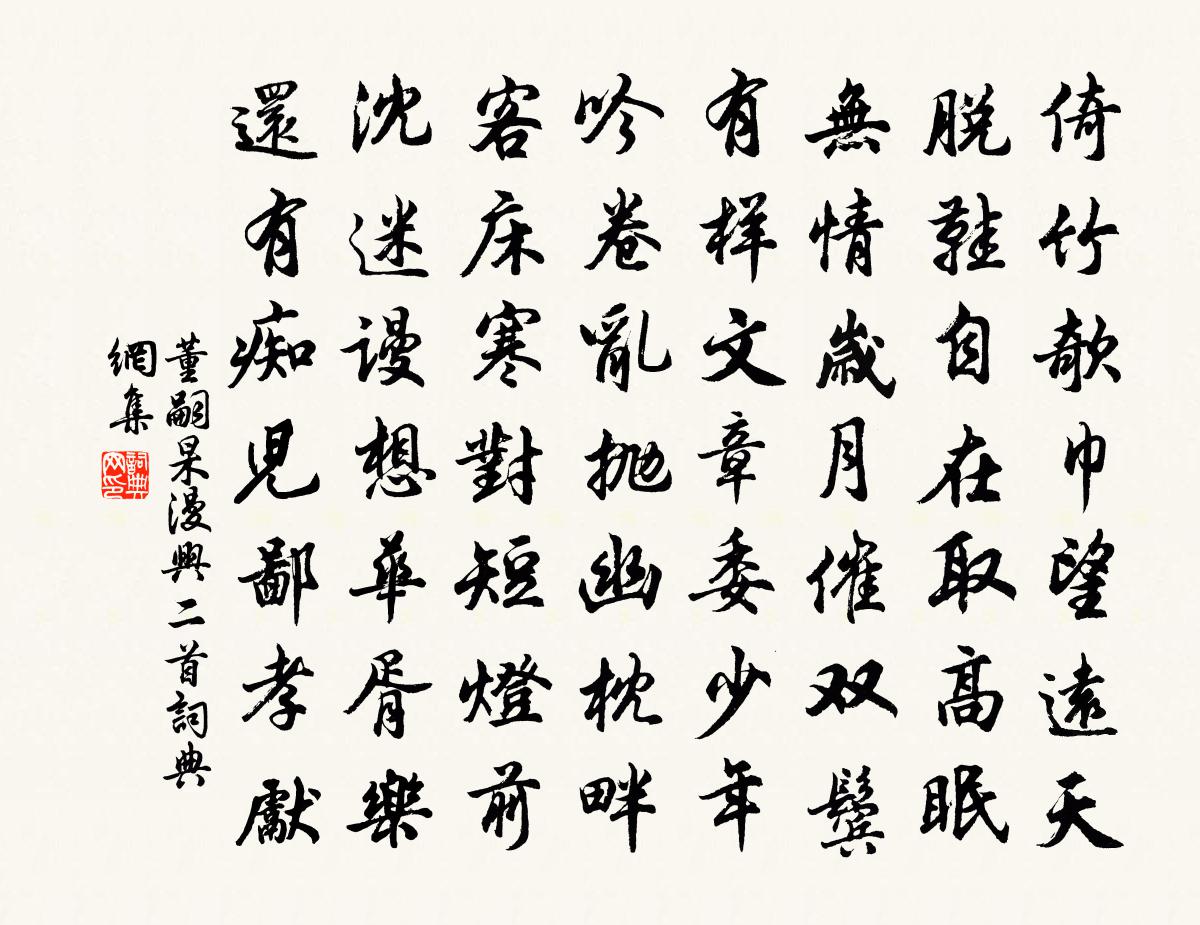 倚竹欹巾望遠天
脱鞋自在取高眠
無情歲月催双鬓
有样文章委少年
吟卷亂抛幽枕畔
客床寒對短燈前
沈迷謾想華胥樂
還有痴児鄙孝獻
董嗣杲漫興二首詞典
網集
詞典網印